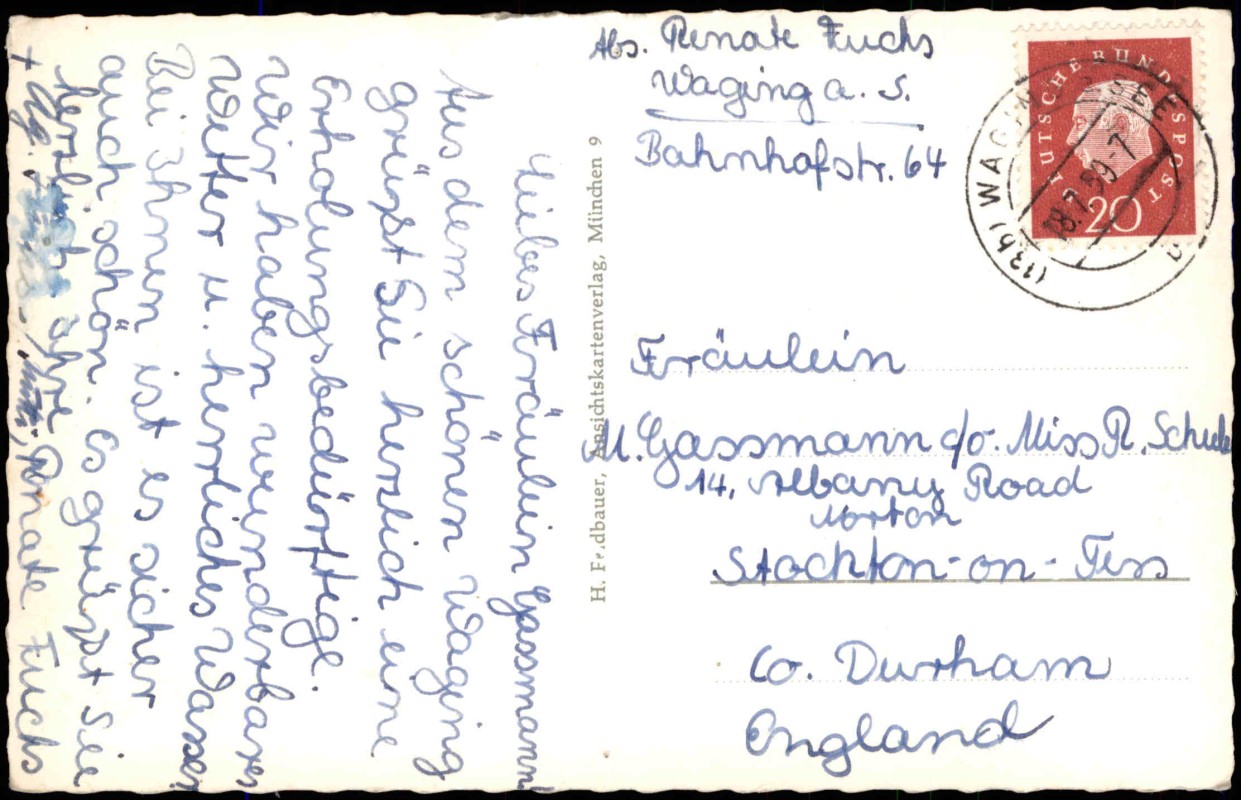 Liebes Fräulein Gassmann
Aus dem schönen Waging
grüßt Sie herzlich eine
Erholungsbedürftige.
Wir haben wunderbares
Wetter u. herrliches Wasser
Bei Ihnen ist es sicher
auch schön. Es grüßt Sie
herzlich Ihre
Renate Fuchs
H. Feldbauer, Ansichtskartenverlag, München 9
Abs. Renate Fuchs
Waging a. S.
Bahnhofstr. 64
DEUTSCHE BUNDESPOST
20
(13b) WAGING SEE
18.7.59-7
a
Fräulein
M. Gassmann c/o. Miss R.
14, Albany Road
Norton
Stockton-on-Tess
Co. Durham
England